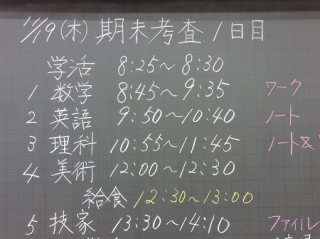 11/19(木) 期末考査 1日目
学活 8:25～8:30
1 数学 8:45～9:35 ワーク
2 英語 9:50～10:40 ノート
3 理科 10:55～11:45 ノート&
4 美術 12:00～12:30
給食 12:30～13:00
5 技家 13:30～14:10 ファイル